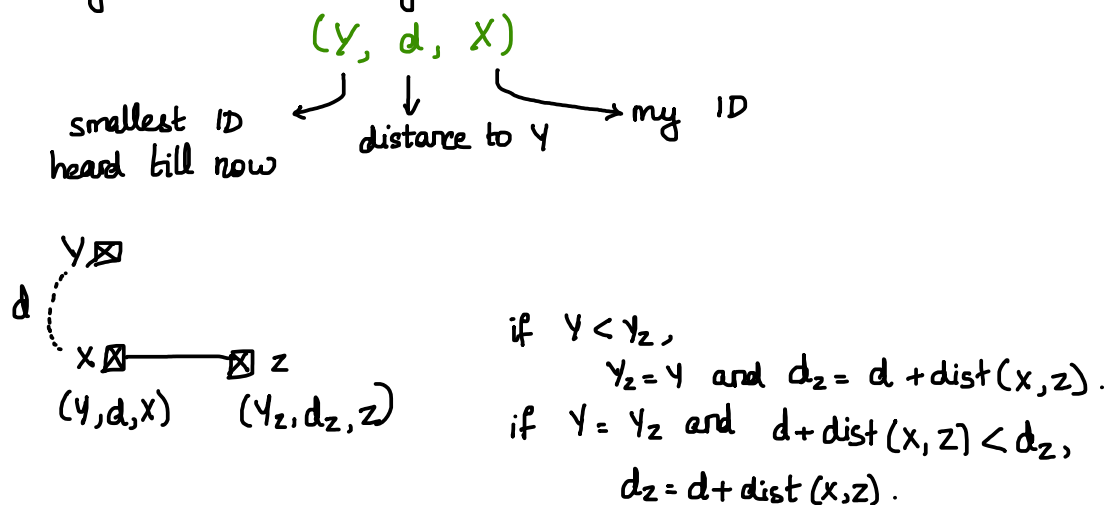 (Y, d, X)
smallest ID
heard till now
distance to Y
my ID
Y
d
X
Z
(Y,d,X)
(Yz, dz, Z)
if Y < Yz,
Yz = Y and dz = d + dist(X,Z).
if Y = Yz and d + dist(X,Z) < dz,
dz = d + dist(X,Z).